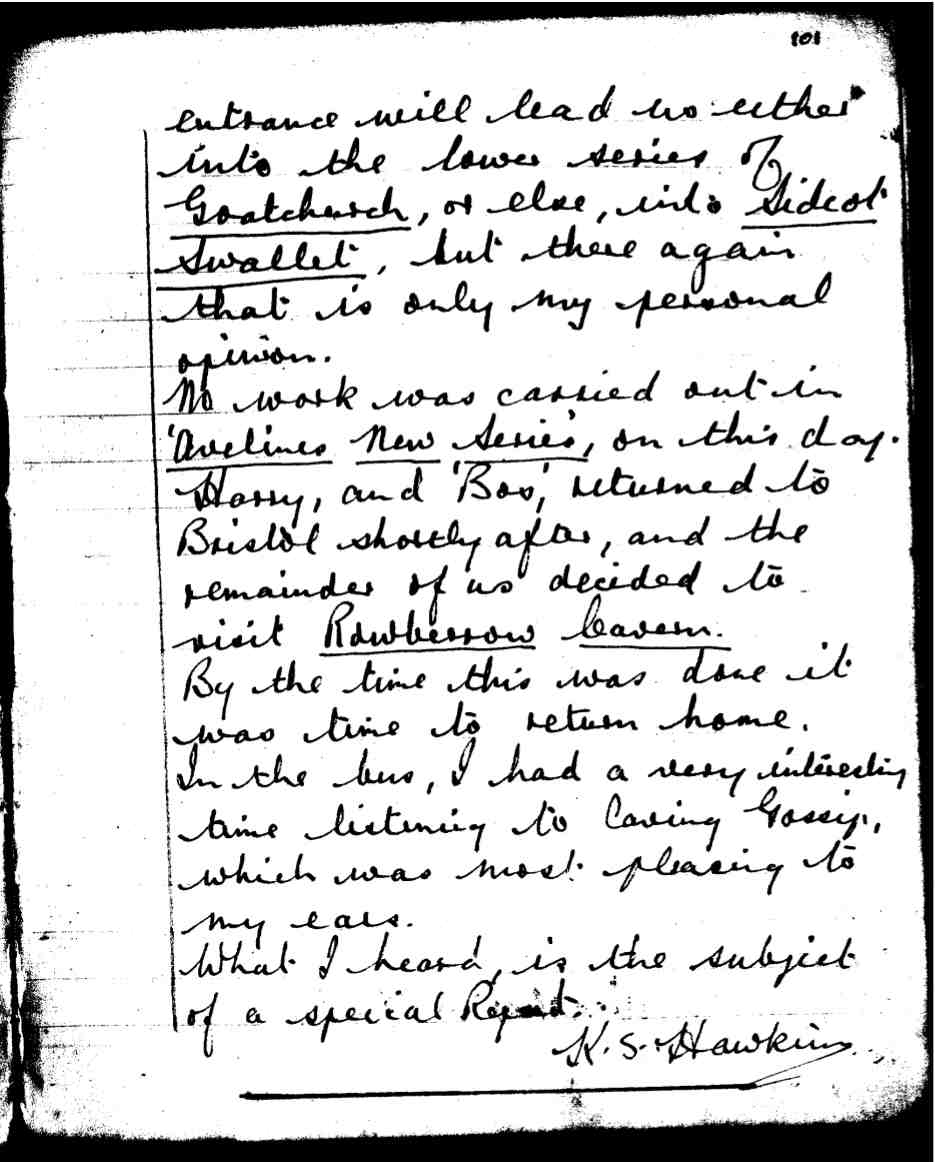 101
entrance will lead us either
into the lower series of
Goatchurch, or else, into Sidcot
Swallet, but there again
that is only my personal
opinion.
No work was carried out in
'Avelines New Series', on this day.
Harry, and 'Bos', returned to
Bristol shortly after, and the
remainder of us decided to
visit Rowberrow Cavern.
By the time this was done it
was time to return home.
In the bus, I had a very interesting
time listening to Caving Gossip,
which was most pleasing to
my ears.
What I heard, is the subject
of a special Report.
K. S. Hawkins